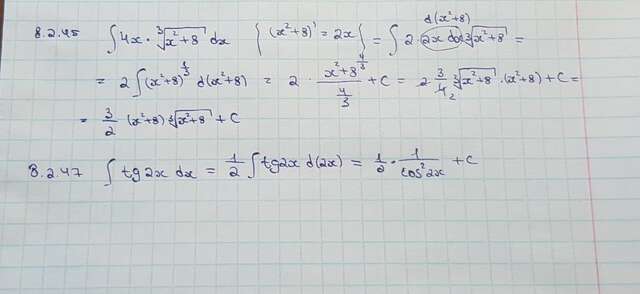 8.2.45 ∫ 4x · ∛(x²+8) dx { (x²+8)' = 2x } = ∫ 2 · 2x dx ∛(x²+8) =
d(x²+8)
= 2 ∫ (x²+8)^(1/3) d(x²+8) = 2 · (x²+8^(4/3))/(4/3) + C = 2 · 3/4₂ ∛(x²+8) · (x²+8) + C =
= 3/2 (x²+8) ∛(x²+8) + C
8.2.47 ∫ tg 2x dx = 1/2 ∫ tg2x d(2x) = 1/2 · 1/cos²2x + C